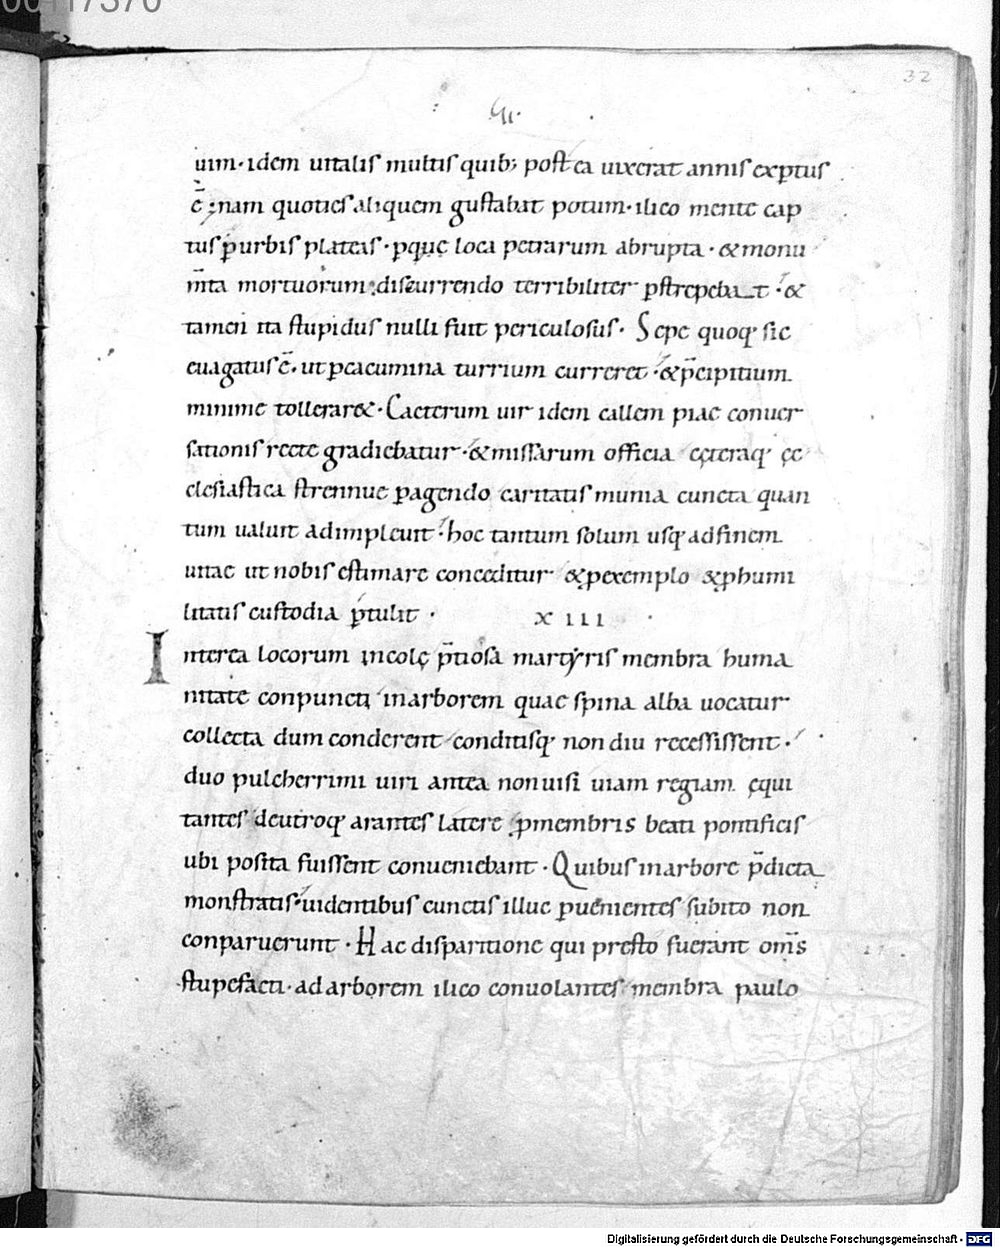 00117370
32
uim · idem uitalis multis quib; postea uixerat annis exptus
ē ; nam quoties aliquem gustabat potum · ilico mente cap
tus p̱ urbis plateas · p̱q̱ue loca petrarum abrupta · & monu
m̄ta mortuorum discurrendo terribiliter p̱strepebat · &
tamen ita stupidus nulli fuit periculosus · Sepe quoq; sic
euagatus ē · ut p̱ cacumina turrium curreret · & p̄cipitium
minime tollerar& · Caeterum uir idem callem piae conuer
sationis recte gradiebatur · & missarum officia cęteraq; ęc
clesiastica strennue p̱agendo caritatis munia cuncta quan
tum ualuit adimpleuit · hoc tantum solum usq; ad finem
uitae ut nobis estimare conceditur & p̱ exemplo & p̱ humi
litatis custodia p̱tulit · XIII ·
Interea locorum incolę p̄tiosa martyris membra huma
nitate conpuncti in arborem quae spina alba uocatur
collecta dum conderent conditisq; non diu recessissent ·
duo pulcherrimi uiri antea non uisi uiam regiam ęqui
tantes deutroq; arantes latere p̱ membris beati pontificis
ubi posita fuissent conueniebant · Quibus in arbore p̄dicta
monstratis uidentibus cunctis illuc p̱uenientes subito non
conparuerunt · Hac disparitione qui presto fuerant om̄s
stupefacti · ad arborem ilico conuolantes membra paulo
Digitalisierung gefördert durch die Deutsche Forschungsgemeinschaft - DFG